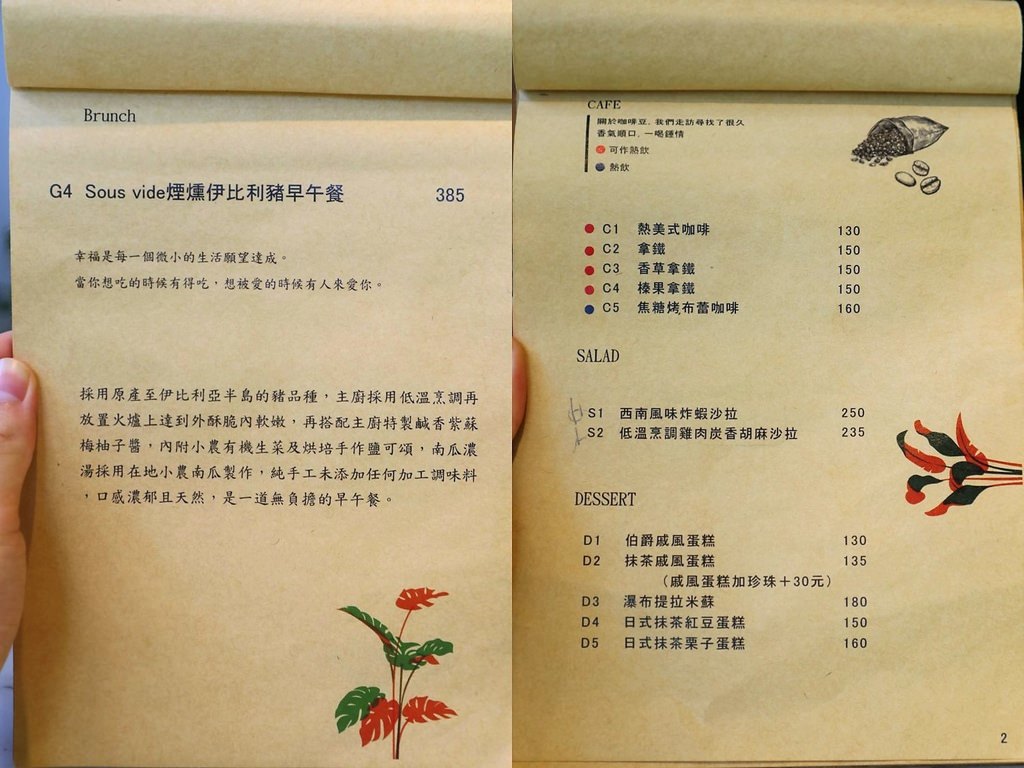 Brunch
G4 Sous vide煙燻伊比利豬早午餐 385
幸福是每一個微小的生活願望達成。
當你想吃的時候有得吃，想被愛的時候有人來愛你。
採用原產至伊比利亞半島的豬品種，主廚採用低溫烹調再
放置火爐上達到外酥脆內軟嫩，再搭配主廚特製鹹香紫蘇
梅柚子醬，內附小農有機生菜及烘培手作鹽可頌，南瓜濃
湯採用在地小農南瓜製作，純手工未添加任何加工調味料
，口感濃郁且天然，是一道無負擔的早午餐。
CAFE
關於咖啡豆，我們走訪尋找了很久
香氣順口，一喝鍾情
可作熱飲
熱飲
C1 熱美式咖啡 130
C2 拿鐵 150
C3 香草拿鐵 150
C4 榛果拿鐵 150
C5 焦糖烤布蕾咖啡 160
SALAD
S1 西南風味炸蝦沙拉 250
S2 低溫烹調雞肉炭香胡麻沙拉 235
DESSERT
D1 伯爵戚風蛋糕 130
D2 抹茶戚風蛋糕 135
（戚風蛋糕加珍珠＋30元）
D3 瀑布提拉米蘇 180
D4 日式抹茶紅豆蛋糕 150
D5 日式抹茶栗子蛋糕 160
2